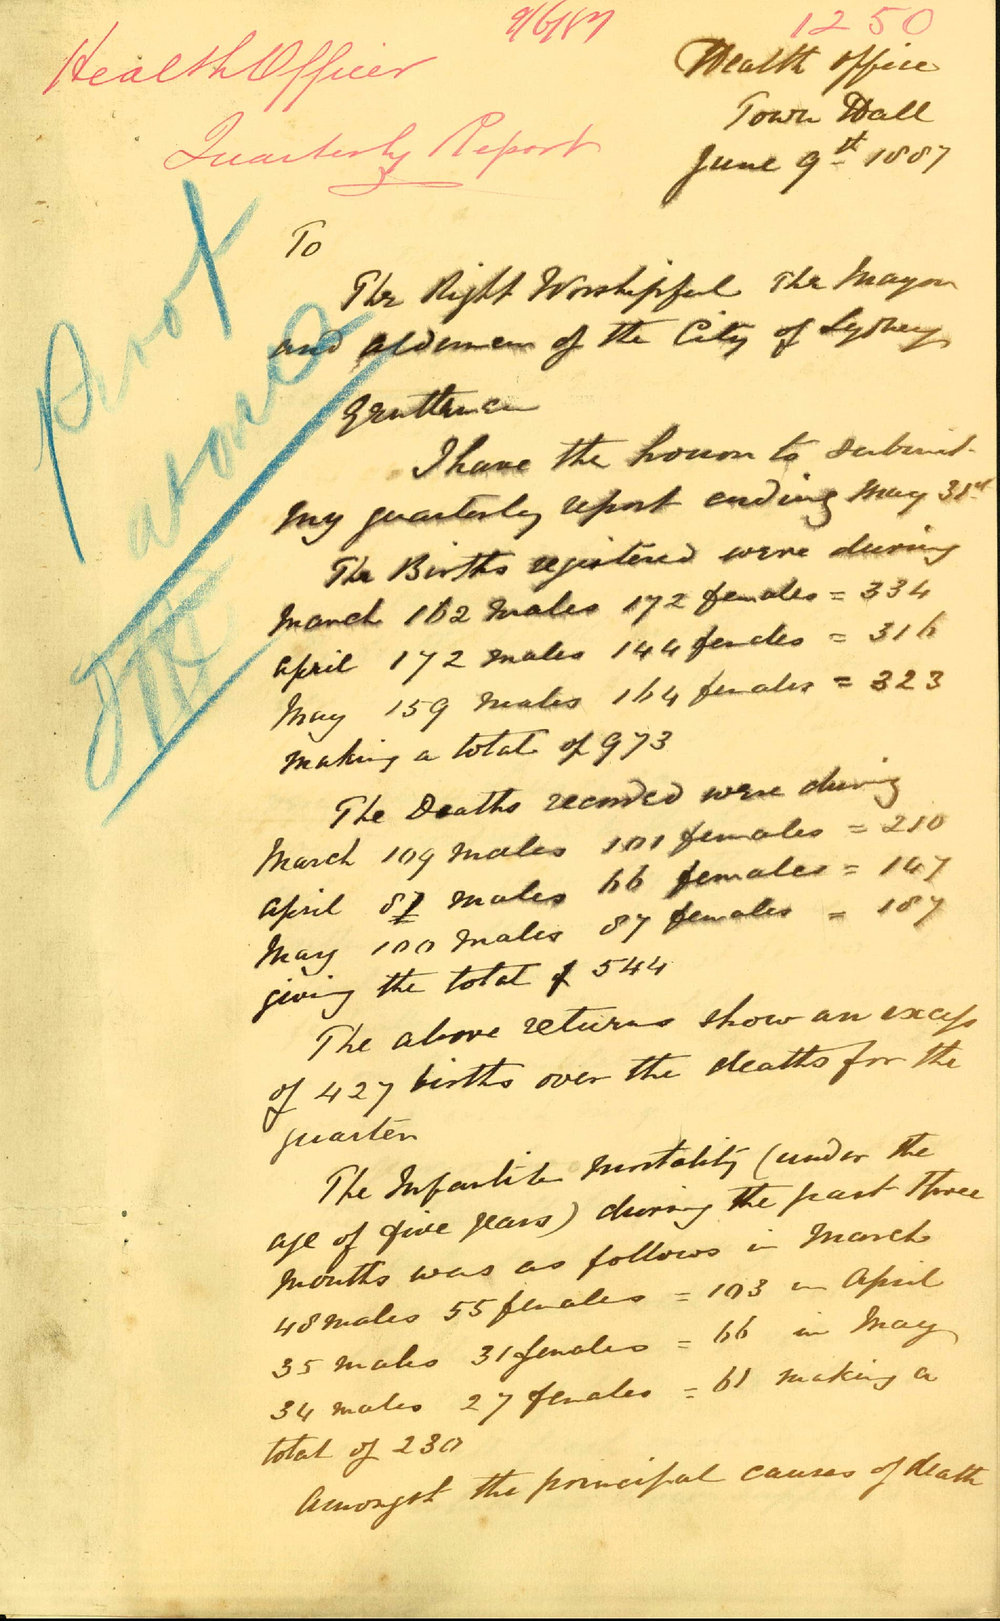 9/6/87
1250
Health Officer
Quarterly Report
Health Office
Town Hall
June 9th 1887
To
The Right Worshipful The Mayor
and Aldermen of the City of Sydney
Gentlemen
I have the honor to submit
my quarterly report ending May 31st
The Births registered were during
March 162 males 172 females = 334
April 172 males 144 females = 316
May 159 males 164 females = 323
making a total of 973
The Deaths recorded were during
March 109 males 101 females = 210
April 81 males 66 females = 147
May 100 males 87 females = 187
giving the total of 544
The above returns show an excess
of 427 births over the deaths for the
quarter
The Infantile Mortality (under the
age of five years) during the past three
months was as follows in March
48 males 55 females = 103 in April
35 males 31 females = 66 in May
34 males 27 females = 61 making a
total of 230
Amongst the principal causes of death